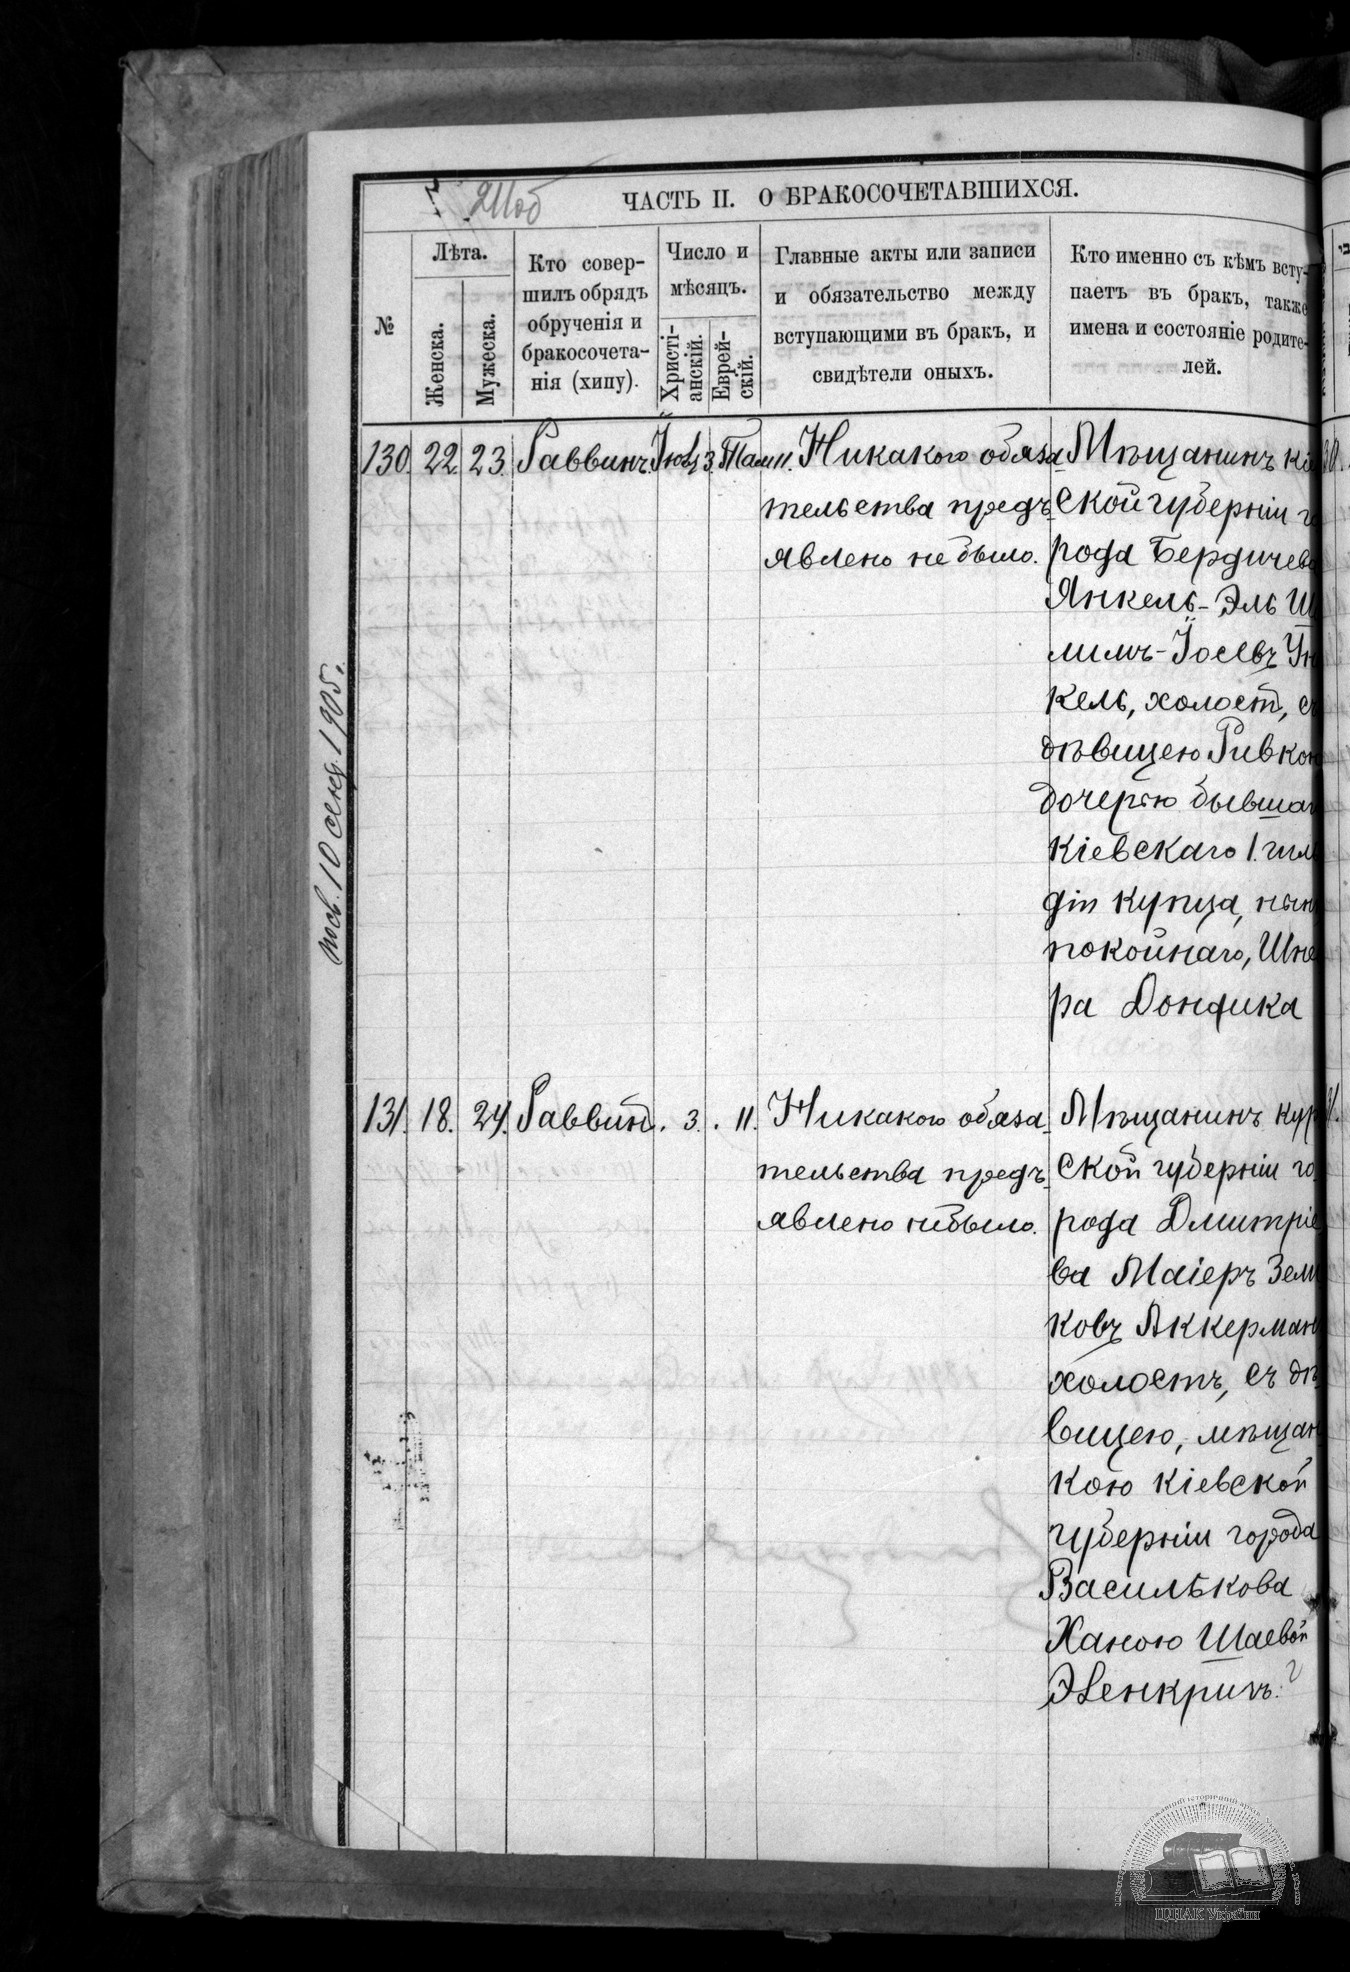 211об
ЧАСТЬ II. О БРАКОСОЧЕТАВШИХСЯ.
№
Лѣта.
Женска.
Мужеска.
Кто совер-
шилъ обрядъ
обрученія и
бракосочета-
нія (хипу).
Число и
мѣсяцъ.
Христі-
анскій.
Еврей-
скій.
Главные акты или записи
и обязательство между
вступающими въ бракъ, и
свидѣтели оныхъ.
Кто именно съ кѣмъ всту-
паетъ въ бракъ, также
имена и состояніе родите-
лей.
130. 22. 23. Раввинъ. 3. Там 11.
Никакого обяза-
тельства предъ-
явлено не было.
Мѣщанинъ кі
ской губерніи го
рода Бердичева
Янкель-Эль Ш
лимъ-Іосевъ Ун
кель, холост, съ
дѣвицею Ривкою
дочерью бывшаг
Кіевскаго 1. гил
діи купца, нын
покойнаго, Шне
ра Донфика
131. 18. 24. Раввин. 3. 11.
Никакого обяза-
тельства предъ-
явлено небыло.
Мѣщанинъ кур
ской губерніи го-
рода Дмитріе
ва Маіеръ Зели
ковъ Аккерман
холостъ, съ дѣ-
вицею, мѣщан
кою Кіевской
губерніи города
Василькова
Ханою Шаевой
пов. 10 сент. 1905.
ЦДІАК України